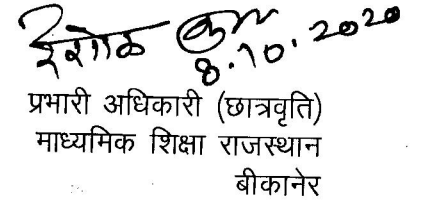 8.10.2020
प्रभारी अधिकारी (छात्रवृति)
माध्यमिक शिक्षा राजस्थान
बीकानेर